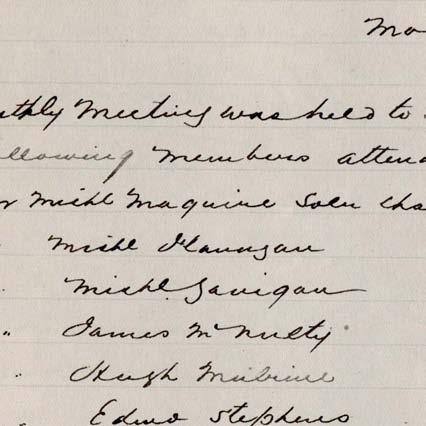 Mo
thly Meeting was held to
llowing Members attend
r Michl Maguire Solr Cha
Michl Flanagan
" Michl. Gavigan
" James McNulty
" Hugh
" Edmd Stephens